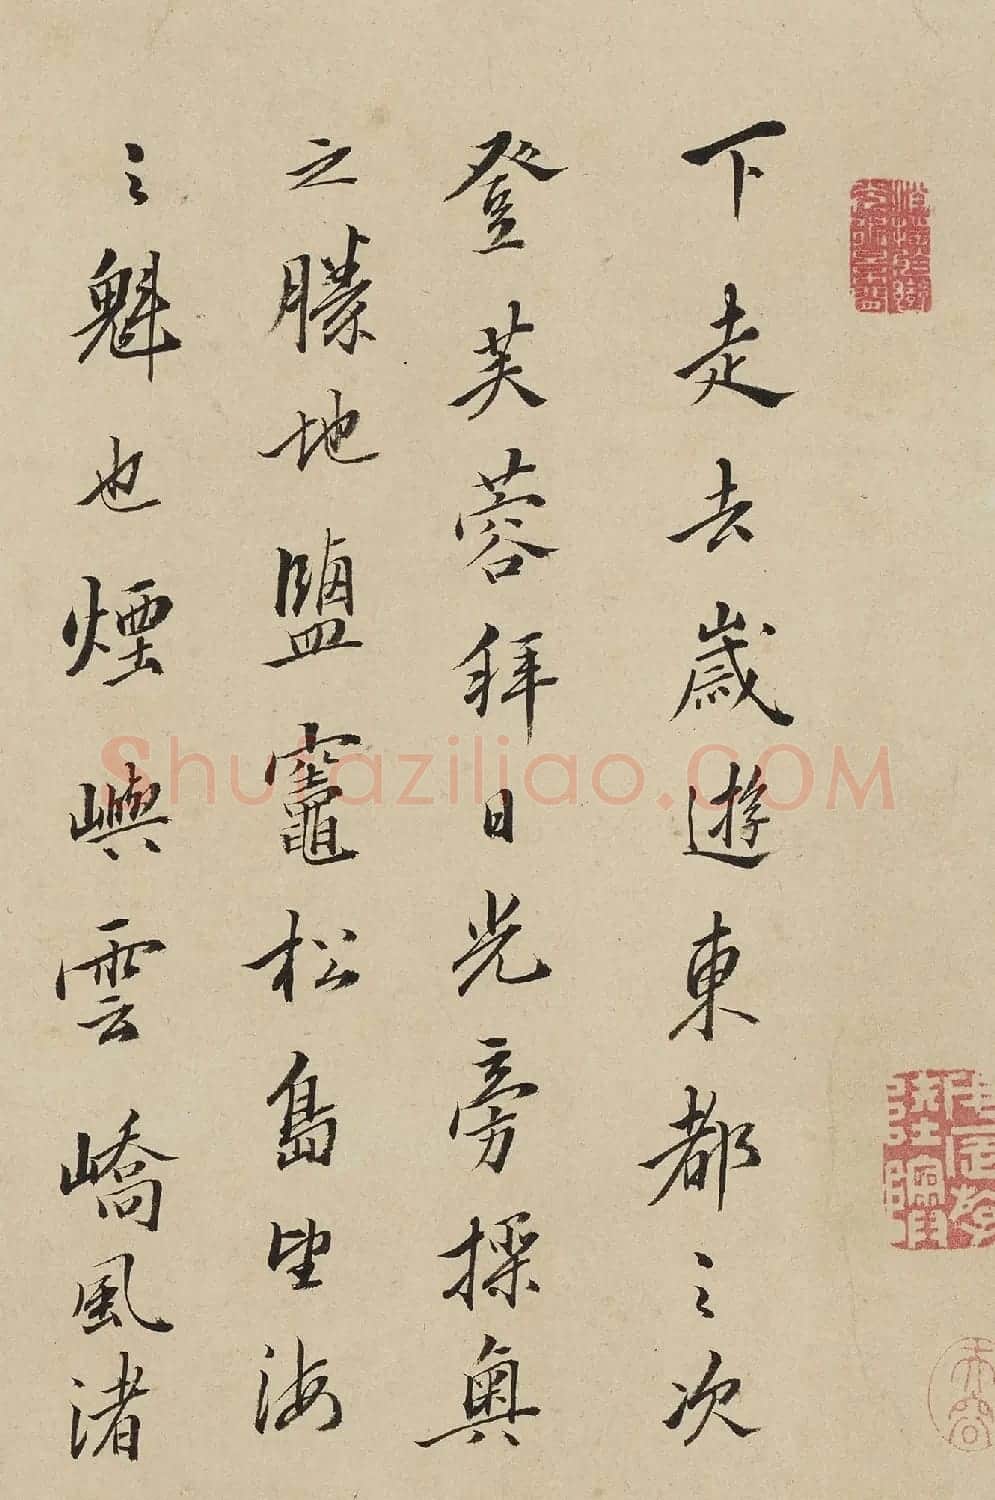 下走去歲遊東都之次
登芙蓉拜日光旁探奧
之勝地鹽竈松島望海
之魁也煙嶼雲嶠風渚
Shufaziliao.COM